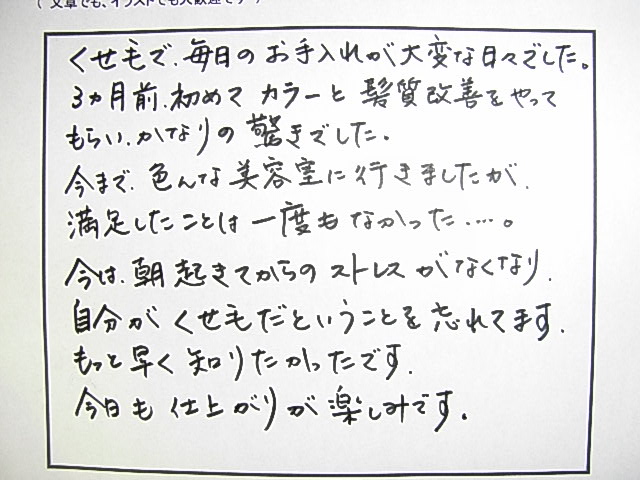 (文章でも、イラストでも大歓迎です!)
くせ毛で、毎日のお手入れが大変な日々でした。
3ヵ月前、初めてカラーと髪質改善をやって
もらい、かなりの驚きでした。
今まで、色んな美容室に行きましたが、
満足したことは一度もなかった……。
今は、朝起きてからのストレスがなくなり、
自分がくせ毛だということを忘れてます。
もっと早く知りたかったです。
今日も仕上がりが楽しみです。